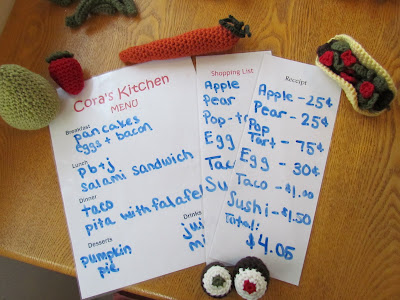 Cora's Kitchen
MENU
Breakfast
pancakes
eggs + bacon
Lunch
pb+j
salami sandwich
Dinner
taco
pita with falafel
Desserts
pumpkin
pie
Drinks
Shopping List
Apple
pear
Pop-
Egg
Receipt
Apple - 25¢
Pear - 25¢
Pop
Tart - 75¢
Egg - 30¢
Taco - $1.00
Sushi - $1.50
Total:
$4.05